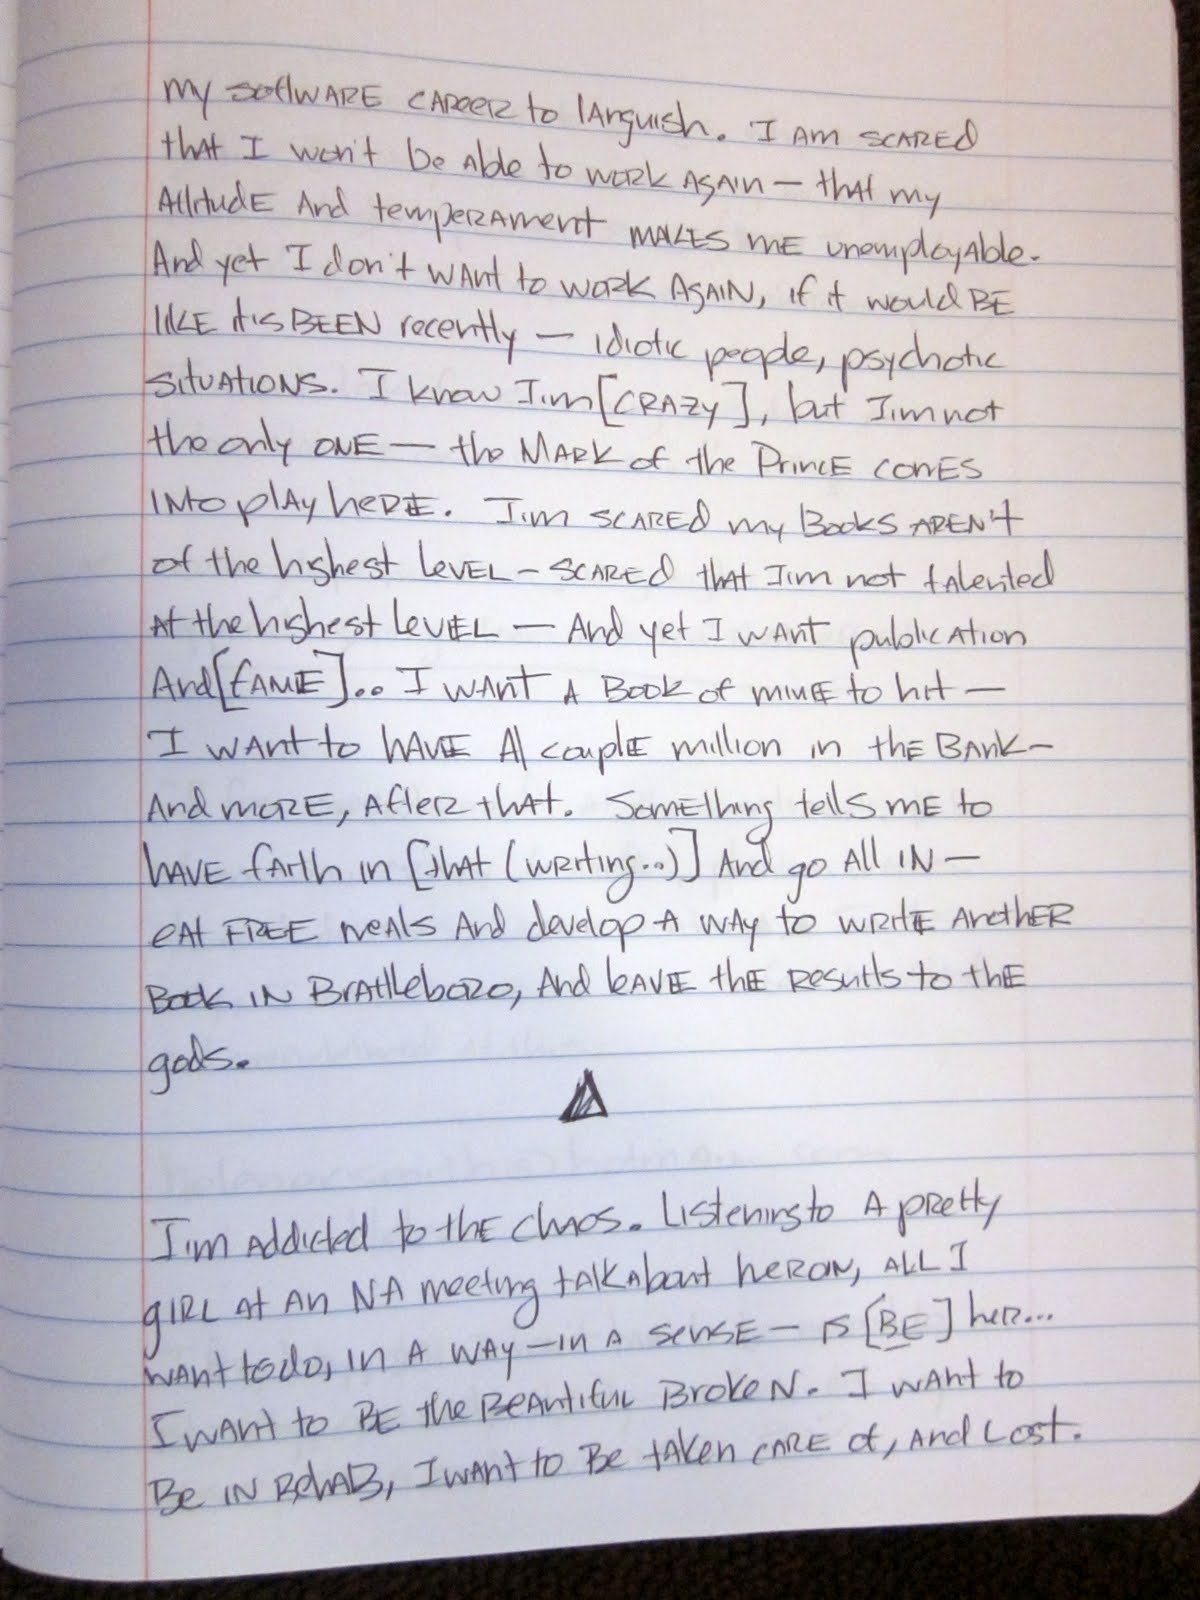 my software career to languish. I am scared
that I won't be able to work again – that my
Attitude And temperament makes me unemployable.
And yet I don't want to work again, if it would be
like it's been recently – idiotic people, psychotic
situations. I know I'm [crazy], but I'm not
the only one – the Mark of the Prince comes
into play here. I'm scared my Books aren't
of the highest level – scared that I'm not talented
at the highest level – And yet I want publication
And [fame].. I want a Book of mine to hit –
I want to have A couple million in the Bank –
And more, after that. Something tells me to
have faith in [that (writing..)] And go all in –
eat free meals And develop a way to write another
Book in Brattleboro, And leave the results to the
gods.
I'm addicted to the chaos. Listening to a pretty
girl at an NA meeting talk about heroin, all I
want to do, in a way – in a sense – is [BE] her...
I want to be the beautiful broken. I want to
Be in Rehab, I want to be taken care of, and lost.